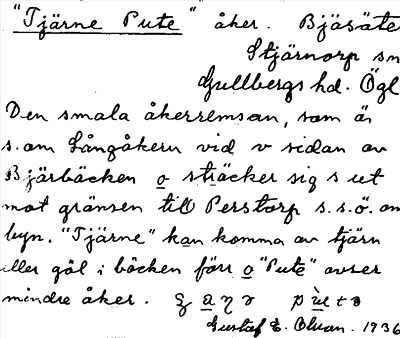 "Tjärne Pute" åker. Bjäsäte
Stjärnorp sn
Gullbergs hd. Ögl
Den smala åkerremsan, som är
s. om Långåkern vid v sidan av
Bjärbäcken o sträcker sig s ut
mot gränsen till Perstorp s.s.ö. om
byn. "Tjärne" kan komma av tjärn
eller göl i bäcken förr o "Pute" avser
mindre åker.
Gustaf E. Olsson. 1936